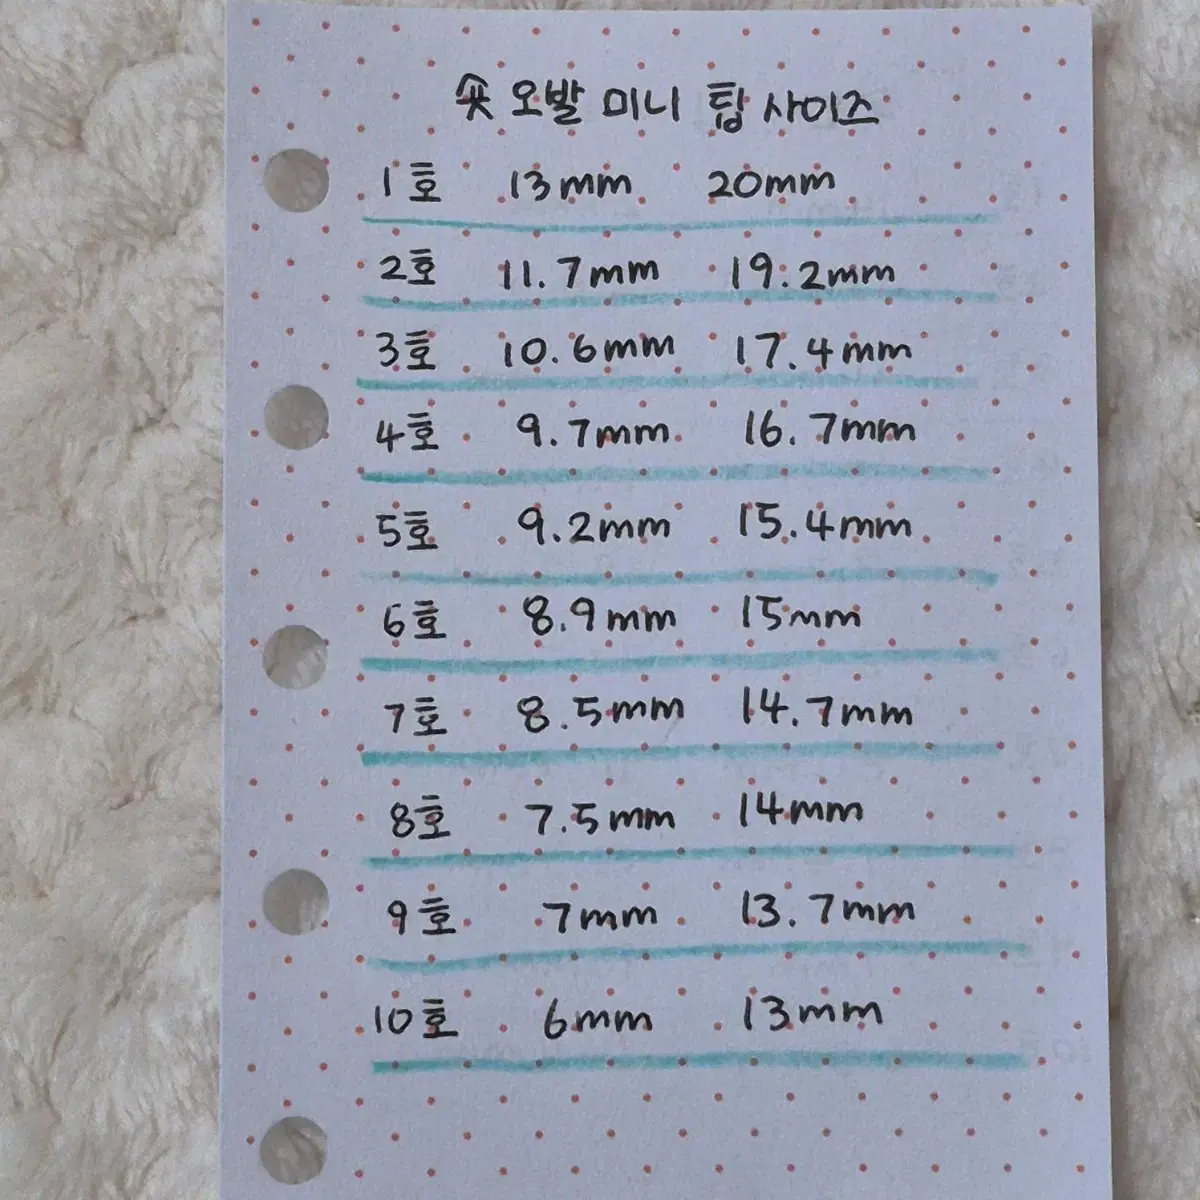 숏 오발 미니 팁 사이즈
1호 13mm 20mm
2호 11.7mm 19.2mm
3호 10.6mm 17.4mm
4호 9.7mm 16.7mm
5호 9.2mm 15.4mm
6호 8.9mm 15mm
7호 8.5mm 14.7mm
8호 7.5mm 14mm
9호 7mm 13.7mm
10호 6mm 13mm